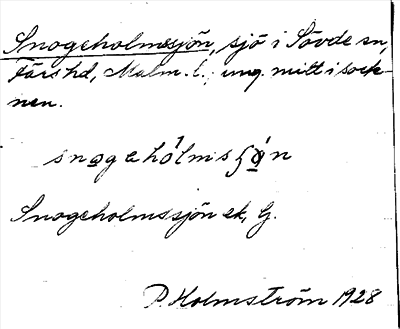 Snogeholmssjön, sjö i Sövde sn,
Färs hd, Malm. l.; ung. mitt i sock-
nen.
Snogeholmssjön ek, G.
P. Holmström 1928